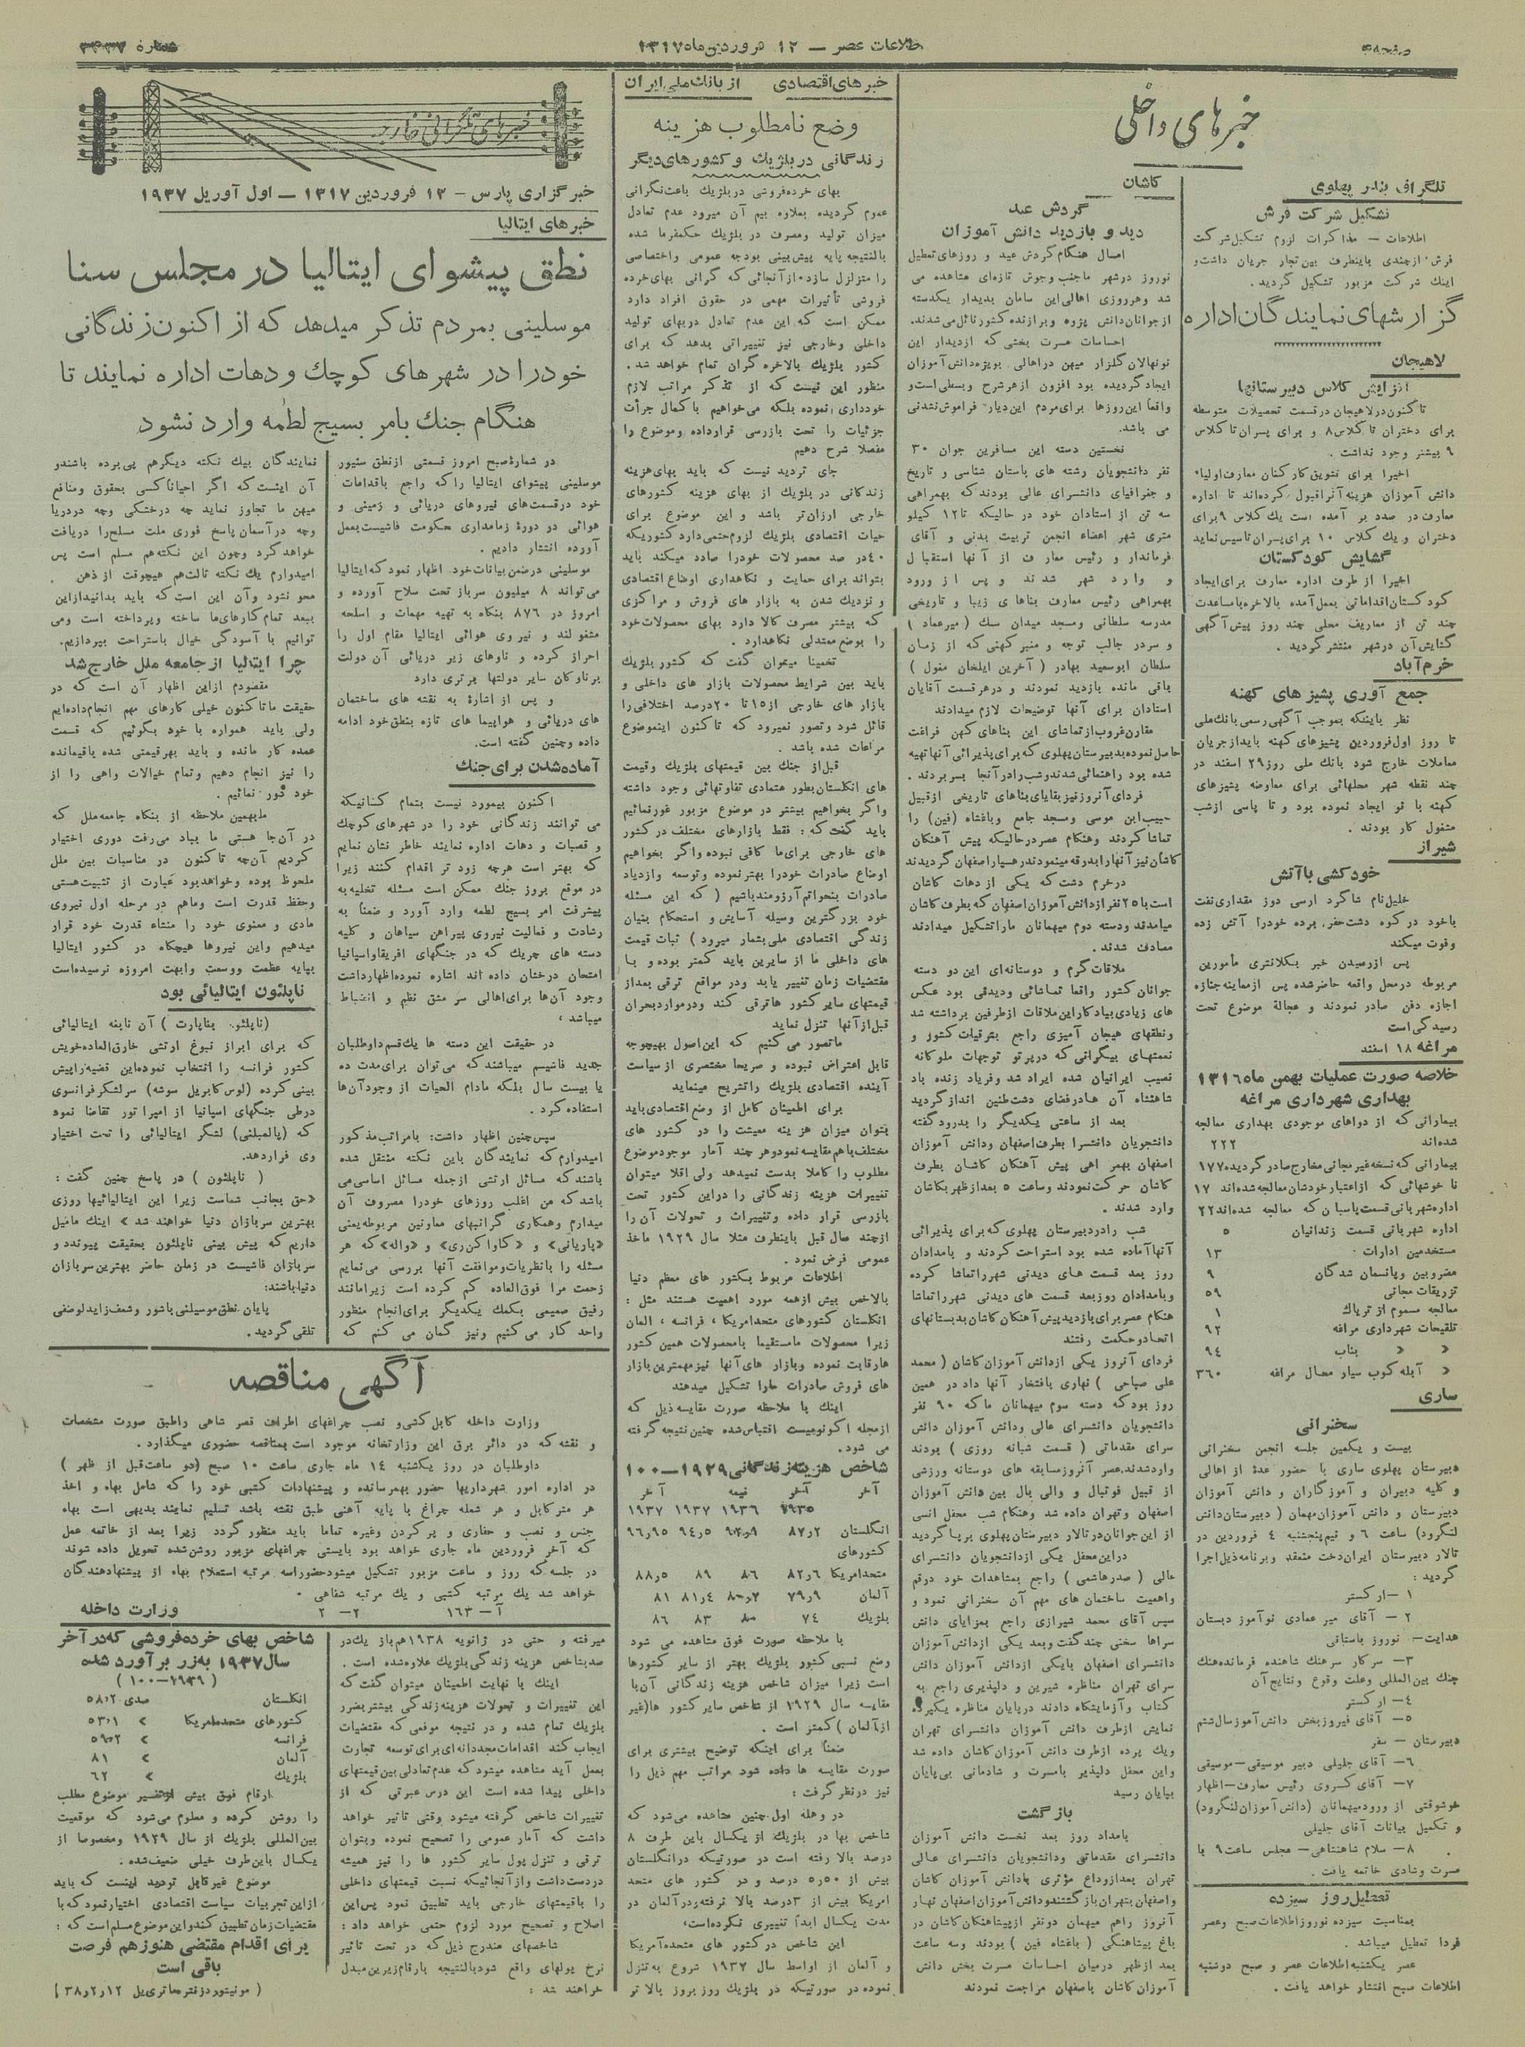 اطلاعات عصر — ۱۲ فروردین‌ماه ۱۳۱۷
شماره ۳۴۳۷
خبرهای داخلی
تلگراف بندر پهلوی
تشکیل شرکت فرش
اطلاعات — مذاکرات لزوم تشکیل شرکت
فرش ازچندی باینطرف بین تجار جریان داشت و
اینك شرکت مزبور تشکیل گردید.
گزارشهای نمایندگان اداره
لاهیجان
افزایش کلاس دبیرستانها
تاکنون در لاهیجان در قسمت تحصیلات متوسطه
برای دختران تا کلاس ۸ و برای پسران تا کلاس
۹ بیشتر وجود نداشت.
اخیرا برای تشویق کارکنان معارف اولیاء
دانش آموزان هزینه آنرا قبول کرده‌اند تا اداره
معارف در صدد بر آمده است یك کلاس ۹ برای
دختران و یك کلاس ۱۰ برای پسران تاسیس نماید
گشایش کودکستان
اخیرا از طرف اداره معارف برای ایجاد
کودکستان اقداماتی بعمل آمده بالاخره با مساعدت
چند تن از معاریف محلی چند روز پیش آگهی
گشایش آن در شهر منتشر گردید.
خرم‌آباد
جمع آوری پشیز های کهنه
نظر باینکه بموجب آگهی رسمی بانك ملی
تا روز اول فروردین پشیزهای کهنه باید از جریان
معاملات خارج شود بانك ملی روز ۲۹ اسفند در
چند نقطه شهر محلهائی برای معاوضه پشیزهای
کهنه با نو ایجاد نموده بود و تا پاسی از شب
مشغول کار بودند.
شیراز
خودکشی با آتش
خلیل نام شاگرد ارسی دوز مقداری نفت
با خود در کوه دشت حفر، برده خودرا آتش زده
و فوت میکند
پس از رسیدن خبر بکلانتری مأمورین
مربوطه در محل واقعه حاضر شده پس از معاینه جنازه
اجازه دفن صادر نمودند و عجالة موضوع تحت
رسیدگی است
مراغه ۱۸ اسفند
خلاصه صورت عملیات بهمن ماه ۱۳۱۶
بهداری شهرداری مراغه
بیمارانی که از دواهای موجودی بهداری معالجه
شده‌اند ۲۲۲
بیمارانی که نسخه غیر مجانی مخارج صادر گردیده ۱۷۷
نا خوشهائی که از اعتبار خودشان معالجه شده‌اند ۱۷
اداره شهربانی قسمت پاسبان که معالجه شده‌اند ۲۲
اداره شهربانی قسمت زندانیان ۵
مستخدمین ادارات ۱۳
مضروبین و پانسمان شدگان ۹
تزریقات مجانی ۵۹
معالجه مسموم از تریاك ۱
تلقیحات شهرداری مراغه ۹۲
« « بناب ۹۴
« آبله کوب سیار محال مراغه ۳۶۰
ساری
سخنرانی
بیست و یکمین جلسه انجمن سخنرانی
دبیرستان پهلوی ساری با حضور عدهٔ از اهالی
و کلیه دبیران و آموزگاران و دانش آموزان
دبیرستان و دانش آموزان مهمان (دبیرستان دانش
لنگرود) ساعت ۶ و نیم پنجشنبه ۴ فروردین در
تالار دبیرستان ایراندخت منعقد و برنامه ذیل اجرا
گردید:
۱ — ارکستر
۲ — آقای میر عمادی نوآموز دبستان
هدایت — نوروز باستانی
۳ — سرکار سرهنك شاهنده فرمانده هنك
جنك بین‌المللی وعلت وقوع ونتایج آن
۴ — ارکستر
۵ — آقای فیروزبخش دانش آموز سال ششم
دبیرستان — سفر
۶ — آقای جلیلی دبیر موسیقی — موسیقی
۷ — آقای کسروی رئیس معارف — اظهار
خوشوقتی از ورود میهمانان (دانش آموزان لنگرود)
و تکمیل بیانات آقای جلیلی
۸ — سلام شاهنشاهی — مجلس ساعت ۹ با
مسرت و شادی خاتمه یافت.
تعطیل روز سیزده
بمناسبت سیزده نوروز اطلاعات صبح و عصر
فردا تعطیل میباشد.
عصر یکشنبه اطلاعات عصر و صبح دوشنبه
اطلاعات صبح انتشار خواهد یافت.
کاشان
گردش عید
دید و بازدید دانش آموزان
امسال هنگام گردش عید و روزهای تعطیل
نوروز در شهر ما جنب وجوش تازه‌ای مشاهده می
شد وهر روزی اهالی این سامان بدیدار یکدسته
از جوانان دانش پژوه و برازنده کشور نائل می‌شدند.
احساسات مسرت بخشی که از دیدار این
نونهالان گلزار میهن در اهالی بویژه دانش آموزان
ایجاد گردیده بود افزون از هر شرح و بسطی است و
واقعاً این روزها برای مردم این دیار فراموش نشدنی
می باشد.
نخستین دسته این مسافرین جوان ۳۰
نفر دانشجویان رشته های باستان شناسی و تاریخ
و جغرافیای دانشسرای عالی بودند که بهمراهی
سه تن از استادان خود در حالیکه تا ۱۲ کیلو
متری شهر اعضاء انجمن تربیت بدنی و آقای
فرماندار و رئیس معارف از آنها استقبال
و وارد شهر شدند و پس از ورود
بهمراهی رئیس معارف بناهای زیبا و تاریخی
مدرسه سلطانی ومسجد میدان سنك (میرعماد)
و سردر جالب توجه و منبر کهنی که از زمان
سلطان ابوسعید بهادر (آخرین ایلخان مغول)
باقی مانده بازدید نمودند و در هر قسمت آقایان
استادان برای آنها توضیحات لازم میدادند
مقارن غروب از تماشای این بناهای کهن فراغت
حاصل نموده بدبیرستان پهلوی که برای پذیرائی آنها تهیه
شده بود راهنمائی شدند وشب را در آنجا بسر بردند.
فردای آنروز نیز بقایای بناهای تاریخی از قبیل
حبیب ابن موسی ومسجد جامع وباغشاه (فین) را
تماشا کردند وهنگام عصر در حالیکه پیش آهنگان
کاشان نیز آنها را بدرقه مینمودند رهسپار اصفهان گردیدند
در خرم دشت که یکی از دهات کاشان
است با ۲۵ نفر از دانش آموزان اصفهان که بطرف کاشان
میامدند ودسته دوم میهمانان مارا تشکیل میدادند
مصادف شدند.
ملاقات گرم و دوستانه‌ای این دو دسته
جوانان کشور واقعا تماشائی ودیدنی بود عکس
های زیادی بیادگار این ملاقات از طرفین برداشته شد
ونطقهای هیجان آمیزی راجع بترقیات کشور و
نعمتهای بیکرانی که در پرتو توجهات ملوکانه
نصیب ایرانیان شده ایراد شد وفریاد زنده باد
شاهنشاه آن هادر فضای دشت طنین انداز گردید
بعد از ساعتی یکدیگر را بدرود گفته
دانشجویان دانشسرا بطرف اصفهان ودانش آموزان
اصفهان بهمراهی پیش آهنگان کاشان بطرف
کاشان حرکت نمودند وساعت ۵ بعد از ظهر بکاشان
وارد شدند.
شب را در دبیرستان پهلوی که برای پذیرائی
آنها آماده شده بود استراحت کردند و بامدادان
روز بعد قسمت های دیدنی شهر را تماشا کرده
وبامدادان روز بعد قسمت های دیدنی شهر را تماشا
هنگام عصر برای بازدید پیش آهنگان کاشان بدبستانهای
اتحاد وحکمت رفتند
فردای آنروز یکی از دانش آموزان کاشان (محمد
علی صباحی) نهاری بافتخار آنها داد در همین
روز بود که دسته سوم میهمانان ما که ۹۰ نفر
دانشجویان دانشسرای عالی ودانش آموزان دانش
سرای مقدماتی (قسمت شبانه روزی) بودند
وارد شدند. عصر آنروز مسابقه های دوستانه ورزشی
از قبیل فوتبال و والی بال بین دانش آموزان
اصفهان وتهران داده شد وهنگام شب محفل انسی
از این جوانان در تالار دبیرستان پهلوی برپا گردید
در این محفل یکی از دانشجویان دانشسرای
عالی (صدر هاشمی) راجع بمشاهدات خود در قم
واهمیت ساختمان های مهم آن سخنرانی نمود و
سپس آقای محمد شیرازی راجع بمزایای دانش
سراها سخنی چند گفت وبعد یکی از دانش آموزان
دانشسرای اصفهان با یکی از دانش آموزان دانش
سرای تهران مناظره شیرین و دلپذیری راجع به
کتاب و آزمایشگاه دادند در پایان مناظره یکپرده
نمایش از طرف دانش آموزان دانشسرای تهران
ویك پرده از طرف دانش آموزان کاشان داده شد
و این محفل دلپذیر با مسرت و شادمانی بی‌پایان
بپایان رسید
باز گشت
بامداد روز بعد نخست دانش آموزان
دانشسرای مقدماتی ودانشجویان دانشسرای عالی
تهران بعد از وداع مؤثری با دانش آموزان کاشان
واصفهان بتهران باز گشتند و دانش آموزان اصفهان نهار
آنروز راهم میهمان دو نفر از پیشاهنگان کاشان در
باغ پیشاهنگی (باغشاه فین) بودند وسه ساعت
بعد از ظهر درمیان احساسات مسرت بخش دانش
آموزان کاشان باصفهان مراجعت نمودند
خبرهای اقتصادی از بانك ملی ایران
وضع نامطلوب هزینه
زندگانی در بلژیك و کشورهای دیگر
بهای خرده فروشی در بلژیك باعث نگرانی
عموم گردیده بعلاوه بیم آن میرود عدم تعادل
میزان تولید ومصرف در بلژیك حکمفرما شده
بالنتیجه پایه پیش بینی بودجه عمومی واختصاصی
را متزلزل سازد. از آنجائی که گرانی بهای خرده
فروشی تأثیرات مهمی در حقوق افراد دارد
ممکن است که این عدم تعادل در بهای تولید
داخلی وخارجی نیز تغییراتی بدهد که برای
کشور بلژیك بالاخره گران تمام خواهد شد.
منظور این نیست که از تذکر مراتب لازم
خودداری نموده بلکه می‌خواهیم با کمال جرأت
جزئیات را تحت بازرسی قرارداده وموضوع را
مفصلا شرح دهیم
جای تردید نیست که باید بهای هزینه
زندگانی در بلژیك از بهای هزینه کشورهای
خارجی ارزان‌تر باشد و این موضوع برای
حیات اقتصادی بلژیك لزوم حتمی دارد کشوریکه
۴۰ در صد محصولات خودرا صادر میکند باید
بتواند برای حمایت و نگاهداری اوضاع اقتصادی
و نزدیك شدن به بازار های فروش و مراکزی
که بیشتر مصرف کالا دارد بهای محصولات خود
را بوضع معتدلی نگاهدارد.
تخمینا میتوان گفت که کشور بلژیك
باید بین شرایط محصولات بازار های داخلی و
بازار های خارجی از ۱۵ تا ۲۰ درصد اختلافی را
قائل شود وتصور نمیرود که تاکنون اینموضوع
مراعات شده باشد.
قبل از جنك بین قیمتهای بلژیك و قیمت
های انگلستان بطور متمادی تفاوتهائی وجود داشته
واگر بخواهیم بیشتر در موضوع مزبور غور نمائیم
باید گفت که: فقط بازارهای مختلف در کشور
های خارجی برای ما کافی نبوده واگر بخواهیم
اوضاع صادرات خودرا بهتر نموده وتوسعه وازدیاد
صادرات بنحو اتم آرزومند باشیم (که این مسئله
خود بزرگترین وسیله آسایش و استحکام بنیان
زندگی اقتصادی ملی بشمار میرود) ثبات قیمت
های داخلی ما از سایرین باید کمتر بوده و با
مقتضیات زمان تغییر یابد ودر مواقع ترقی بعد از
قیمتهای سایر کشور ها ترقی کند ودر موارد بحران
قبل از آنها تنزل نماید
ما تصور می کنیم که این اصول بهیچوجه
قابل اعتراض نبوده و صریحا مختصری از سیاست
آینده اقتصادی بلژیك را تشریح مینماید
برای اطمینان کامل از وضع اقتصادی باید
بتوان میزان هزینه معیشت را در کشور های
مختلف باهم مقایسه نمود و هر چند آمار موجود موضوع
مطلوب را کاملا بدست نمیدهد ولی اقلا میتوان
تغییرات هزینه زندگانی را در این کشور تحت
بازرسی قرار داده وتغییرات و تحولات آن را
از چند سال قبل باینطرف مثلا سال ۱۹۲۹ ماخذ
عمومی فرض نمود.
اطلاعات مربوط بکشور های معظم دنیا
بالاخص بیش از همه مورد اهمیت هستند مثل:
انگلستان کشورهای متحد امریکا، فرانسه، المان
زیرا محصولات ما مستقیما با محصولات همین کشور
ها رقابت نموده وبازار های آنها نیز مهمترین بازار
های فروش صادرات مارا تشکیل میدهند
اینك با ملاحظه صورت مقایسه ذیل که
از مجله اکونومیست اقتباس شده چنین نتیجه گرفته
می شود.
شاخص هزینه زندگانی ۱۹۲۹—۱۰۰
آخر آخر نیمه آخر
۱۹۳۵ ۱۹۳۶ ۱۹۳۷ ۱۹۳۷
انگلستان ۸۷٫۲ ۹۲٫۹ ۹۴٫۵ ۹۶٫۹۵
کشورهای
متحد امریکا ۸۲٫۶ ۸۶ ۸۹ ۸۸٫۵
آلمان ۷۹٫۹ ۸۰٫۲ ۸۱٫۴ ۸۱
بلژیك ۷۴ ۸۰ ۸۳ ۸۶
با ملاحظه صورت فوق مشاهده می شود
وضع نسبی کشور بلژیك بهتر از سایر کشورها
است زیرا میزان شاخص هزینه زندگانی آن با
مقایسه سال ۱۹۲۹ از شاخص سایر کشور ها (غیر
از آلمان) کمتر است.
ضمناً برای اینکه توضیح بیشتری برای
صورت مقایسه ها داده شود مراتب مهم ذیل را
نیز در نظر گرفت:
در وهله اول چنین مشاهده می‌شود که
شاخص بها در بلژیك از یکسال باین طرف ۸
درصد بالا رفته است در صورتیکه در انگلستان
بیش از ۵٫۵۰ درصد و در کشور های متحد
امریکا بیش از ۳ درصد بالا نرفته ودر آلمان در
مدت یکسال ابداً تغییری نکرده است.
این شاخص در کشور های متحده آمریکا
و آلمان از اواسط سال ۱۹۳۷ شروع به تنزل
نموده در صورتیکه در بلژیك روز بروز بالا تر
خبرهای تلگرافی خارجه
خبرگزاری پارس — ۱۲ فروردین ۱۳۱۷ — اول آوریل ۱۹۳۷
خبرهای ایتالیا
نطق پیشوای ایتالیا در مجلس سنا
موسلینی بمردم تذکر میدهد که از اکنون زندگانی
خودرا در شهرهای کوچك و دهات اداره نمایند تا
هنگام جنك بامر بسیج لطمه وارد نشود
در شمارهٔ صبح امروز قسمتی از نطق سنیور
موسلینی پیشوای ایتالیا را که راجع باقدامات
خود در قسمت‌های نیروهای دریائی و زمینی و
هوائی در دورهٔ زمامداری حکومت فاشیست بعمل
آورده انتشار دادیم.
موسلینی در ضمن بیانات خود اظهار نمود که ایتالیا
می‌تواند ۸ میلیون سرباز تحت سلاح آورده و
امروز در ۸۷۶ بنگاه به تهیه مهمات و اسلحه
مشغولند و نیروی هوائی ایتالیا مقام اول را
احراز کرده و ناوهای زیر دریائی آن دولت
بر ناوکان سایر دولتها برتری دارد
و پس از اشارهٔ به نقشه های ساختمان
های دریائی و هواپیما های تازه بنطق خود ادامه
داده وچنین گفته است.
آماده شدن برای جنك
اکنون بیمورد نیست بتمام کسانیکه
می توانند زندگانی خود را در شهرهای کوچك
و قصبات و دهات اداره نمایند خاطر نشان نمایم
که بهتر است هرچه زود تر اقدام کنند زیرا
در موقع بروز جنك ممکن است مسئله تخلیه به
پیشرفت امر بسیج لطمه وارد آورد و ضمناً به
رشادت و فعالیت نیروی پیراهن سیاهان و کلیه
دسته های چریك که در جنگهای افریقا و اسپانیا
امتحان درخشان داده اند اشاره نموده اظهار داشت
وجود آن‌ها برای اهالی سر مشق نظم و انضباط
میباشد،
در حقیقت این دسته ها یك قسم داوطلبان
جدید فاشیسم میباشند که می‌توان برای مدت ده
یا بیست سال بلکه مادام الحیات از وجود آن‌ها
استفاده کرد.
سپس چنین اظهار داشت: با مراتب مذکور
امیدوارم که نمایندگان باین نکته متنقل شده
باشند که مسائل ارتشی از جمله مسائل اساسی می
باشد که من اغلب روزهای خودرا مصروف آن
میدارم وهمکاری گرانبهای معاونین مربوطه یعنی
«پاریانی» و «کاواکنری» و «واله» که هر
مسئله را با نظریات و موافقت آنها بررسی می‌نمایم
زحمت مرا فوق‌العاده کم کرده است زیرا مانند
رفیق صمیمی بکمك یکدیگر برای انجام منظور
واحد کار می کنیم ونیز گمان می کنم که
نمایندگان بیك نکته دیگر هم پی برده باشند و
آن اینست که اگر احیاناً کسی بحقوق ومنافع
میهن ما تجاوز نماید چه در خشکی وچه در دریا
وچه در آسمان پاسخ فوری ملت مسلح را دریافت
خواهد کرد وچون این نکته هم مسلم است پس
امیدوارم یك نکته ثالث هم هیچوقت از ذهن
محو نشود وآن این است که باید بدانید از این
ببعد تمام کارهای‌ها ساخته وپرداخته است ومی
توانیم با آسودگی خیال باستراحت بپردازیم.
چرا ایتالیا از جامعه ملل خارج شد
مقصودم از این اظهار آن است که در
حقیقت ما تاکنون خیلی کارهای مهم انجام داده‌ایم
ولی باید همواره با خود بگوئیم که قسمت
عمده کار مانده و باید بهر قیمتی شده باقیمانده
را نیز انجام دهیم وتمام خیالات واهی را از
خود دور نمائیم.
ما بهمین ملاحظه از بنگاه جامعه ملل که
در آن‌جا هستی ما بباد می‌رفت دوری اختیار
کردیم آن‌چه تاکنون در مناسبات بین ملل
ملحوظ بوده وخواهد بود عبارت از تثبیت هستی
وحفظ قدرت است وماهم در مرحله اول نیروی
مادی و معنوی خود را منشاء قدرت خود قرار
میدهیم واین نیروها هیچگاه در کشور ایتالیا
بپایه عظمت ووسعت وابهت امروزه نرسیده است
ناپلئون ایتالیائی بود
(ناپلئون بناپارت) آن نابغه ایتالیائی
که برای ابراز نبوغ ارتشی خارق العاده خویش
کشور فرانسه را انتخاب نموده این قضیه را پیش
بینی کرده (لوس کابریل سوشه) سرلشگر فرانسوی
در طی جنگهای اسپانیا از امپراتور تقاضا نمود
که (پالمبلنی) لشگر ایتالیائی را تحت اختیار
وی قرار دهد.
(ناپلئون) در پاسخ چنین گفت:
«حق بجانب شماست زیرا این ایتالیائیها روزی
بهترین سربازان دنیا خواهند شد» اینك ما میل
داریم که پیش بینی ناپلئون بحقیقت پیوندد و
سربازان فاشیست در زمان حاضر بهترین سربازان
دنیا باشند:
پایان نطق موسیلنی باشور وشعف زاید لوصفی
تلقی گردید.
آگهی مناقصه
وزارت داخله کابل کشی و نصب چراغهای اطراف قصر شاهی را طبق صورت مشخصات
و نقشه که در دائر برق این وزارتخانه موجود است بمناقصه حضوری میگذارد.
داوطلبان در روز یکشنبه ۱۴ ماه جاری ساعت ۱۰ صبح (دو ساعت قبل از ظهر)
در اداره امور شهرداریها حضور بهمرسانده و پیشنهادات کتبی خود را که شامل بهاء و اخذ
هر متر کابل و هر شعله چراغ با پایه آهنی طبق نقشه باشد تسلیم نمایند بدیهی است بهاء
جنس و نصب و حفاری و پر کردن وغیره تماما باید منظور گردد زیرا بعد از خاتمه عمل
که آخر فروردین ماه جاری خواهد بود بایستی چراغهای مزبور روشن شده تحویل داده شوند
در جلسه که روز و ساعت مزبور تشکیل میشود حضورا سه مرتبه استعلام بهاء از پیشنهاد دهندگان
خواهد شد یك مرتبه کتبی و یك مرتبه شفاهی.
آ — ۱۶۳ ۲ — ۲ وزارت داخله
میرفته و حتی در ژانویه ۱۹۳۸ هم باز یك در
صد بشاخص هزینه زندگی بلژیك علاوه شده است.
اینك با نهایت اطمینان میتوان گفت که
این تغییرات و تحولات هزینه زندگی بیشتر بضرر
بلژیك تمام شده و در نتیجه موقعی که مقتضیات
ایجاب کند اقدامات مجددانه‌ای برای توسعه تجارت
بعمل آید مشاهده میشود که عدم تعادلی بین قیمتهای
داخلی پیدا شده است این درس عبرتی که از
تغییرات شاخص گرفته میشود وقتی تاثیر خواهد
داشت که آمار عمومی را تصحیح نموده وبتوان
ترقی و تنزل پول سایر کشور ها را نیز همیشه
در دست داشت واز آنجائیکه نسبت قیمتهای داخلی
را با قیمتهای خارجی باید تطبیق نمود پس این
اصلاح و تصحیح مورد لزوم حتمی خواهد داد:
شاخصهای مندرج ذیل که در تحت تاثیر
نرخ پولهای واقع شود بالنتیجه بارقام زیرین مبدل
خواهند شد:
شاخص بهای خرده فروشی که در آخر
سال ۱۹۳۷ به زر برآورد شده
(۱۹۲۹—۱۰۰)
انگلستان صدی ۵۸٫۲
کشورهای متحده امریکا » ۵۳٫۱
فرانسه » ۵۹٫۲
آلمان » ۸۱
بلژیك » ۶۲
ارقام فوق بیش از تفسیر موضوع مطلب
را روشن کرده و معلوم می‌شود که موقعیت
بین‌المللی بلژیك از سال ۱۹۲۹ ومخصوصا از
یکسال باین طرف خیلی ضعیف شده.
موضوع غیر قابل تردید اینست که باید
از این تجربیات سیاست اقتصادی اختیار نمود که با
مقتضیات زمان تطبیق کند و این موضوع مسلم است که:
برای اقدام مقتضی هنوز هم فرصت
باقی است
(مونیتور دزنتره ماتریل ۳۸٫۲٫۱۲)